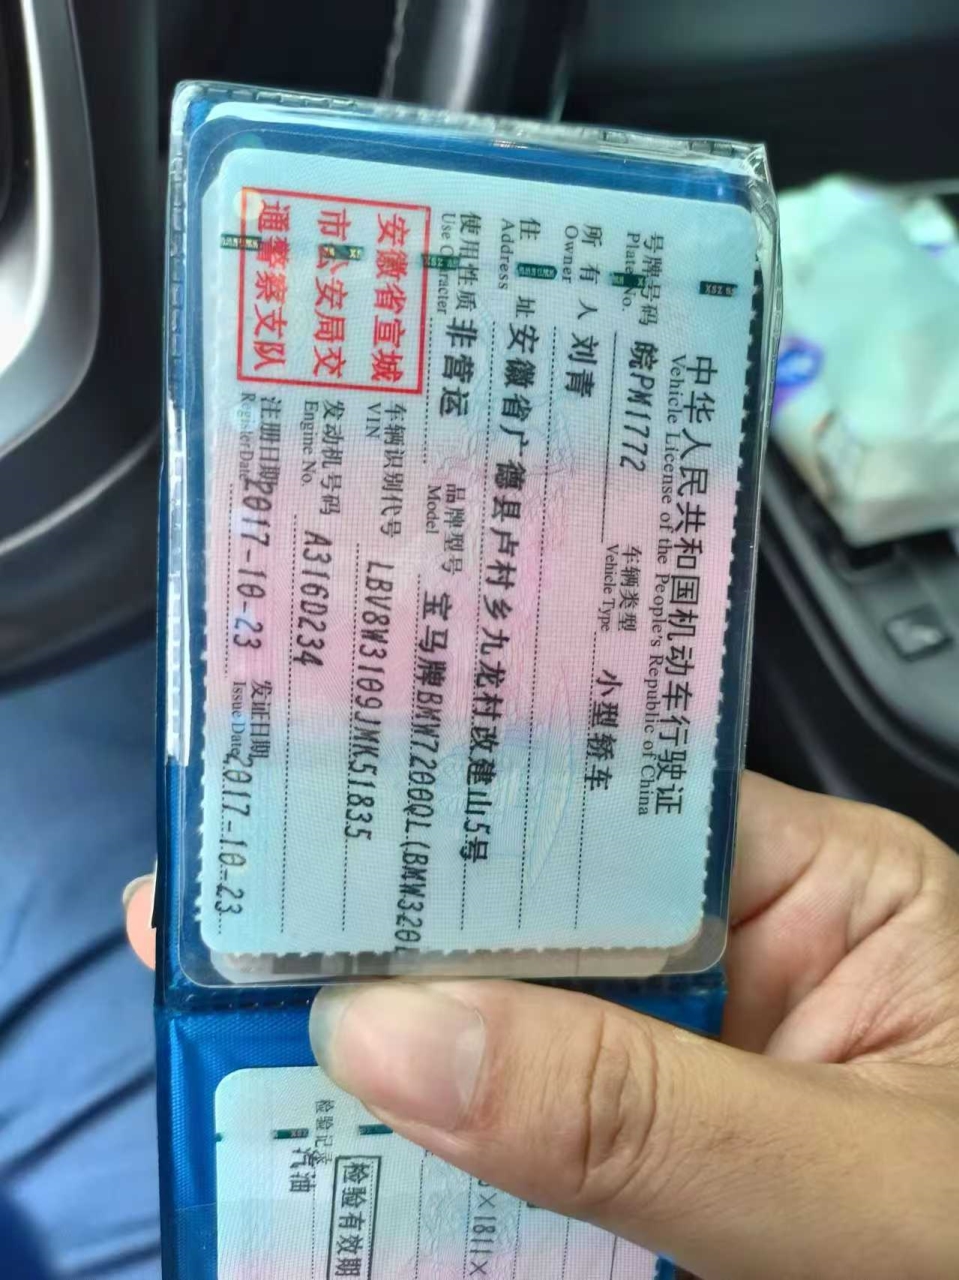 中华人民共和国机动车行驶证
Vehicle License of the People's Republic of China
号牌号码 皖PM1772 车辆类型 小型轿车
Plate No. Vehicle Type
所有人 刘青
Owner
住址 安徽省广德县卢村乡九龙村改建山5号
Address
使用性质 非营运 品牌型号 宝马牌BMW7200QL(BMW320
Use Character Model
安徽省宣城
市公安局交
通警察支队
车辆识别代号 LBV8W3109JMK51835
VIN
发动机号码 A316D234
Engine No.
注册日期 2017-10-23 发证日期 2017-10-23
Register Date Issue Date
×1811×
检验有效期
检验记录
汽油